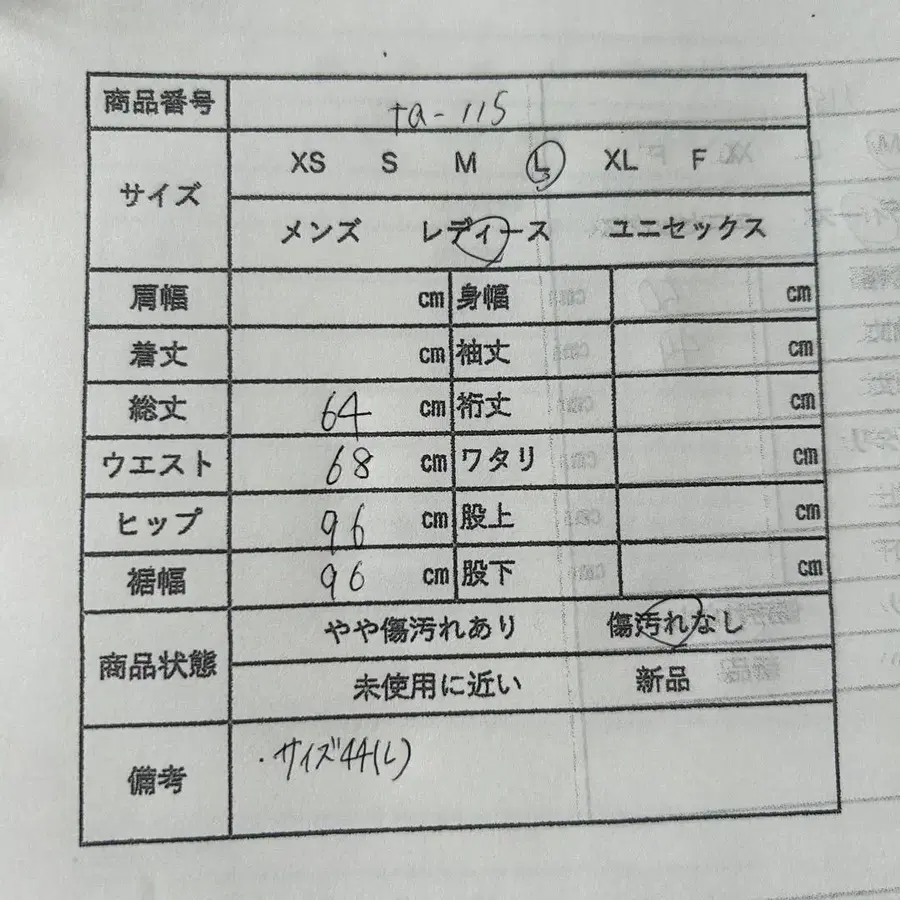 商品番号 ta-115
サイズ XS S M L XL F
メンズ レディース ユニセックス
肩幅 cm 身幅 cm
着丈 cm 袖丈 cm
総丈 64 cm 裄丈 cm
ウエスト 68 cm ワタリ cm
ヒップ 96 cm 股上 cm
裾幅 96 cm 股下 cm
商品状態 やや傷汚れあり 傷汚れなし
未使用に近い 新品
備考 ・サイズ44(L)